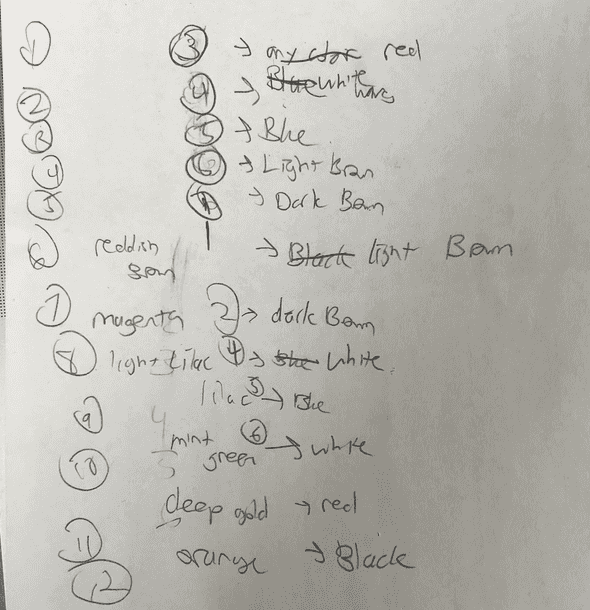 ① ③ → any color red
② ④ → Blue white
③ ⑤ → Blue.
④ ⑥ → Light Bran
⑤ → Dark Bam
⑥ reddish → Black light Bam
⑦ magenta ② → dark Bam
⑧ light lilac ④ → Blue white.
lilac ⑤ → Blue
⑨ 4
mint ⑥ → white
⑩ 5 green
deep gold → red
⑪ orange → Black
⑫